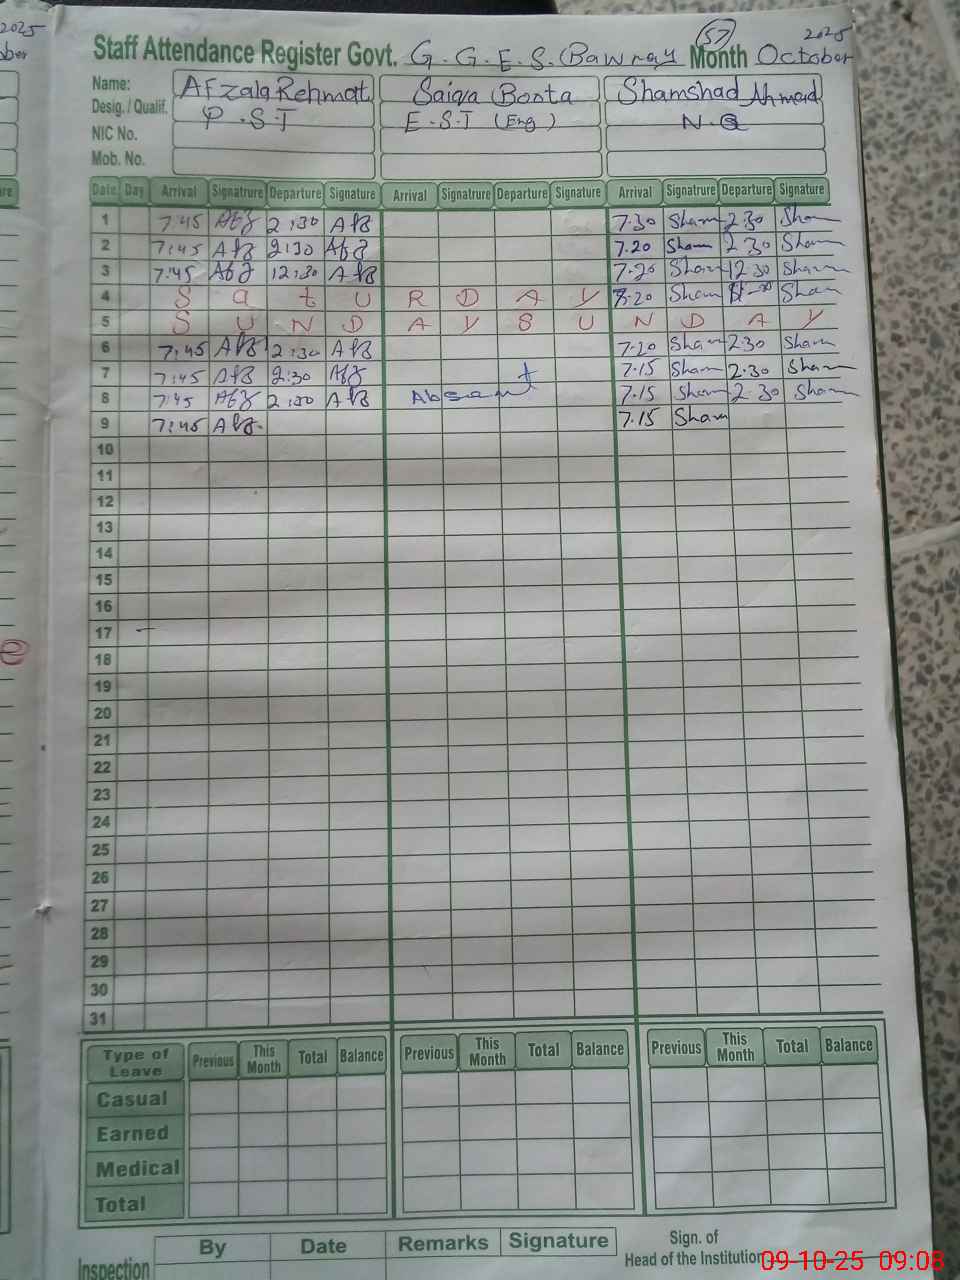 2025
Staff Attendance Register Govt. G.G.E.S. Bawray 57 Month October 2025
Name: Afzala Rehmat Saiqa Bonta Shamshad Ahmad
Desig. / Qualif. P.S.T E.S.T (Eng) N.Q
NIC No.
Mob. No.
Date Day Arrival Signatrure Departure Signature Arrival Signatrure Departure Signature Arrival Signatrure Departure Signature
1 7:45 Afz 2:30 Afz 7.30 Sham 2.30 Sham
2 7:45 Afz 2:30 Afz 7.20 Sham 2.30 Sham
3 7:45 Afz 12:30 Afz 7.20 Sham 12.30 Sham
4 S a t U R D A Y 7.20 Sham Sham
5 S U N D A Y S U N D A Y
6 7:45 Afz 2:30 Afz 7.20 Sham 2.30 Sham
7 7:45 Afz 2:30 Afz 7.15 Sham 2.30 Sham
8 7:45 Afz 2:30 Afz Absent 7.15 Sham 2.30 Sham
9 7:45 Afz 7.15 Sham
10
11
12
13
14
15
16
17
18
19
20
21
22
23
24
25
26
27
28
29
30
31
Type of Leave Previous This Month Total Balance Previous This Month Total Balance Previous This Month Total Balance
Casual
Earned
Medical
Total
Inspection By Date Remarks Signature Sign. of
Head of the Institution
09-10-25 09:08